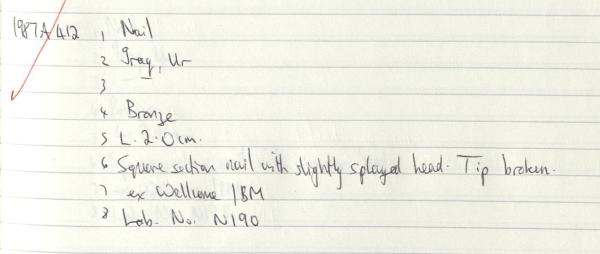 1987A412 1 Nail
2 Iraq, Ur
3
4 Bronze
5 L. 2.0cm.
6 Square section nail with slightly splayed head. Tip broken.
7 ex Wellcome /BM
8 Lab. No. N190